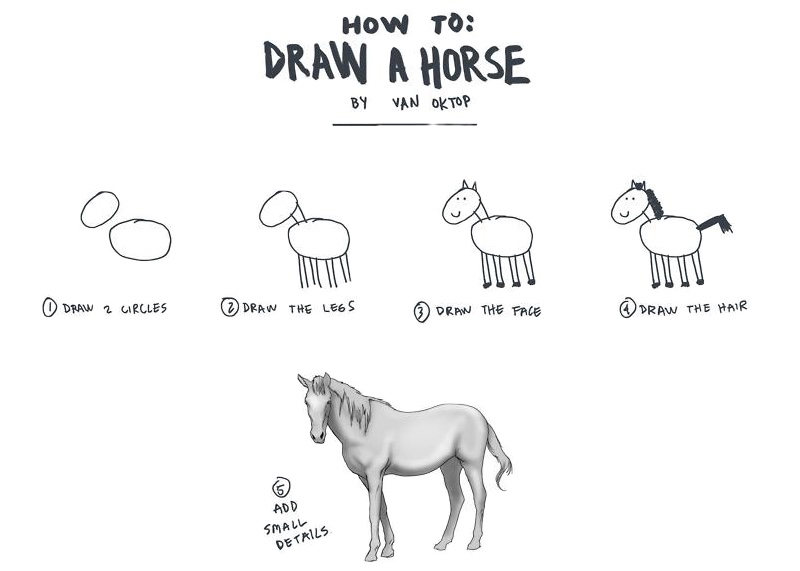 HOW TO:
DRAW A HORSE
BY VAN OKTOP
1 DRAW 2 CIRCLES
2 DRAW THE LEGS
3 DRAW THE FACE
4 DRAW THE HAIR
5
ADD
SMALL
DETAILS